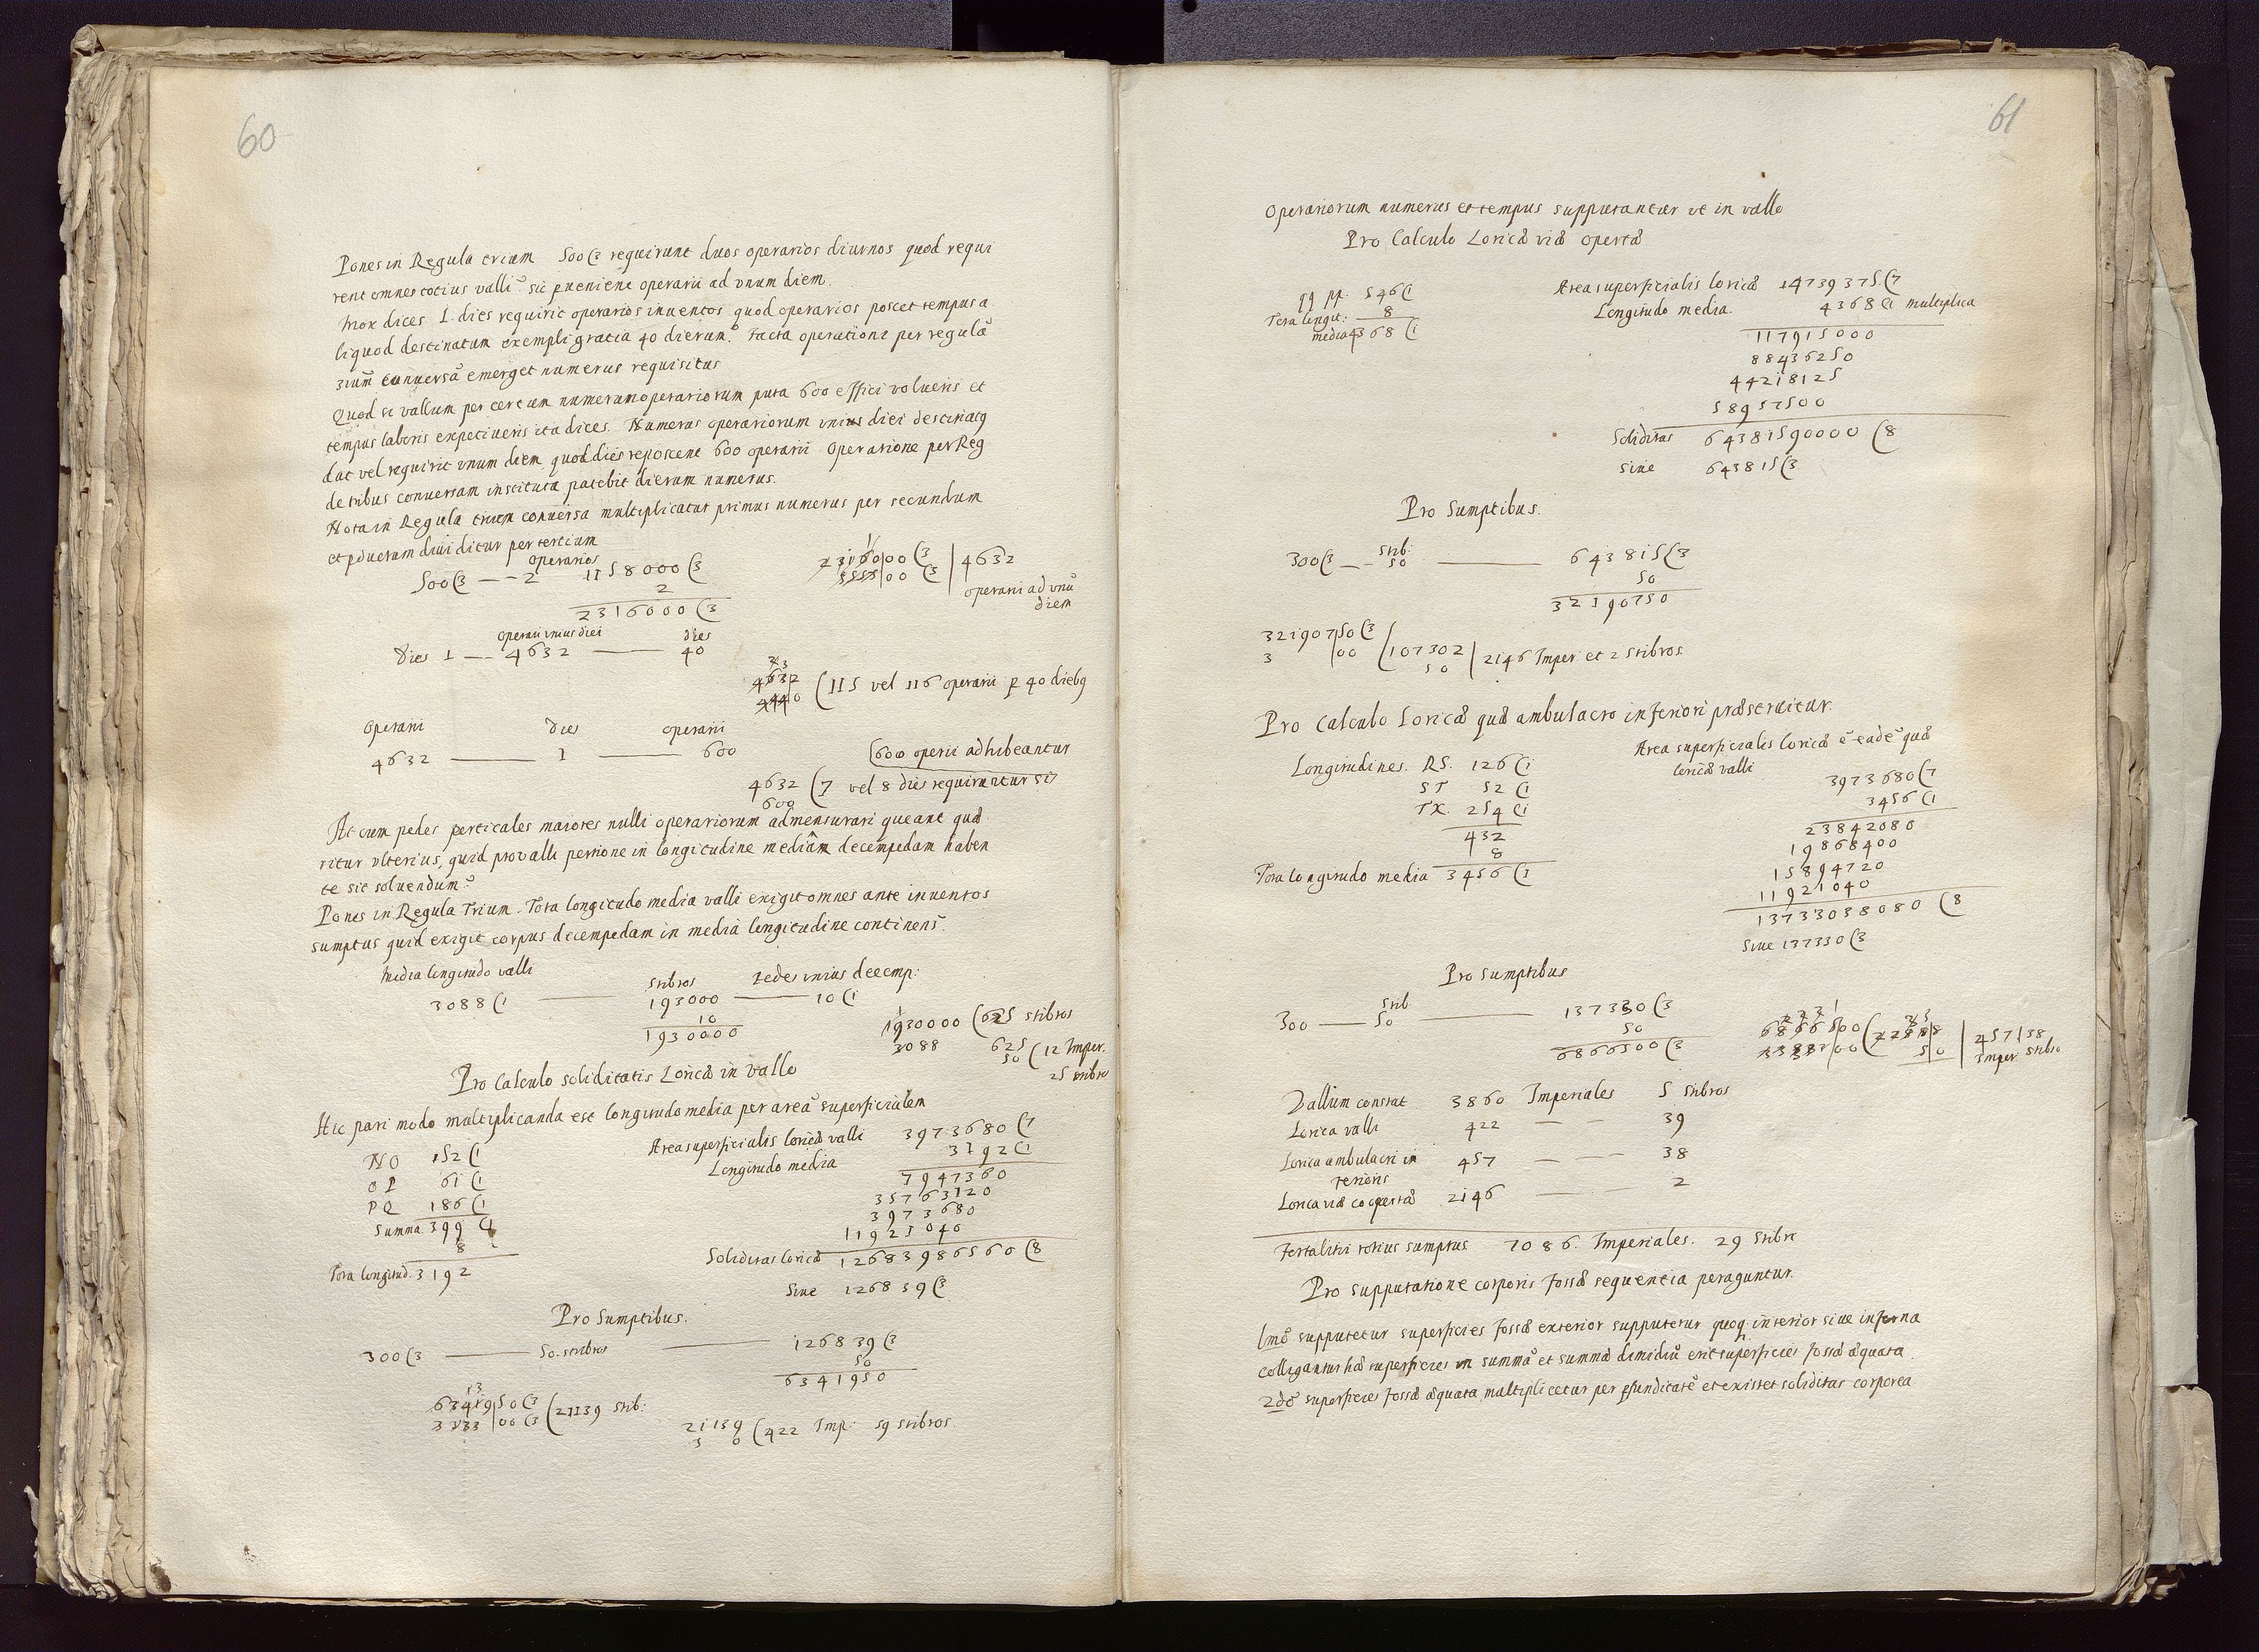 60
Pones in Regula trium 500(3 requirunt duos operarios diurnos quod requi
rent omnes totius valli? sic pueniens operarii ad vnum diem.
Mox dices 1. dies requirit operarios inuentos quod operarios poscet tempus a
liquod destinatum exempli gratia 40 dierum? facta operatione per regulã
3rium conuersã emerget numerus requisitus
Quod si vallum per certum numerum operariorum puta 600 effici volueris et
tempus laboris expetiueris ita dices. Numerus operariorum vnius diei destinatq
dat vel requirit vnum diem quod dies reposcent 600 operarii Operatione per Reg
de tribus conuersam instituta patebit dierum numerus.
Nota in Regula trium conuersa multiplicatur primus numerus per secundum
et pductum diuiditur per tertium
operarios
500(3 — - 2 1158000(3
2
2316000(3
2316000(3 | 4632
5555|00(3 operarii ad vnũ
diem
operarii vnius diei dies
Dies 1 — 4632 — 40
4632
4440 (115 vel 116 operarii p 40 diebq
Operarii dies operarii
4632 — 1 — 600
(600 operii adhibeantur
4632 (7 vel 8 dies requiruntur si
600
At cum pedes perticales maiores nulli operariorum admensurari queant quæ
ritur vlterius, quid pro valli portione in longitudine mediam decempedam haben
te sit soluendum?
Pones in Regula Trium. Tota longitudo media valli exigit omnes ante inuentos
sumptus quid exigit corpus decempedam in media longitudine continens?
Media longitudo valli
stibros Pedes vnius decemp:
3088(1 — 193000 — 10(1
10
1930000
1930000 (625 stibros
3088 625
50 (12 Imper.
25 stibro
Pro Calculo soliditatis Loricæ in vallo
Hic pari modo multiplicanda est longitudo media per areã superficialem
NO 152(1
OP 61(1
PQ 186(1
Summa 399(1
8
Tota longitud. 3192
Area superficialis loricæ valli 3973680(7
Longitudo media 3192(1
7947360
35763120
3973680
11921040
Soliditas loricæ 12683986560(8
Siue 126839(3
Pro Sumptibus.
300(3 — 50. stibros — 126839(3
50
6341950
63419|50(3
3133|00(3 (21139 stib:
21139 (422 Imp: 39 stibros.
5 0
61
Operariorum numerus et tempus supputantur vt in vallo
Pro Calculo Loricæ viæ opertæ
qq pp. 546(1
8
Tota longit:
media 4368(1
Area superficialis loricæ 14739375(7
Longitudo media. 4368(1 multiplica
117915000
88436250
44218125
58957500
Soliditas 64381590000(8
Siue 643815(3
Pro Sumptibus.
stib:
300(3 — - 50 — 643815(3
50
32190750
321907|50(3
3 |00 (107302
50 | 2146 Imper et 2 stibros
Pro Calculo Loricæ quæ ambulacro inferiori præstruitur.
Longitudines. RS. 126(1
ST 52(1
TX. 254(1
432
8
Tota longitudo media 3456(1
Area superficialis loricæ ẽ eadẽ quæ
loricæ valli 3973680(7
3456(1
23842080
19868400
15894720
11921040
13733038080(8
Siue 137330(3
Pro Sumptibus
stib
300 — 50 — 137330(3
50
6866500(3
68665|00
|00 (22888
50 | 457 | 38
Imper. stibro
Vallum constat 3860 Imperiales 5 stibros
Lorica valli 422 — — 39
Lorica ambulacri in 457 — — 38
ferioris
Lorica viæ coopertæ 2146 — — 2
Fortalitii totius sumptus 7086. Imperiales. 29 stibri
Pro supputatione corporis fossæ sequentia peraguntur.
1mõ supputetur superficies fossæ exterior supputetur quoq interior siue inferna
colligantur hæ superficies in summã et summæ dimidiũ erit superficies fossæ æquata.
2dõ superficies fossæ æquata multiplicetur per pfunditatẽ et existet soliditas corporea